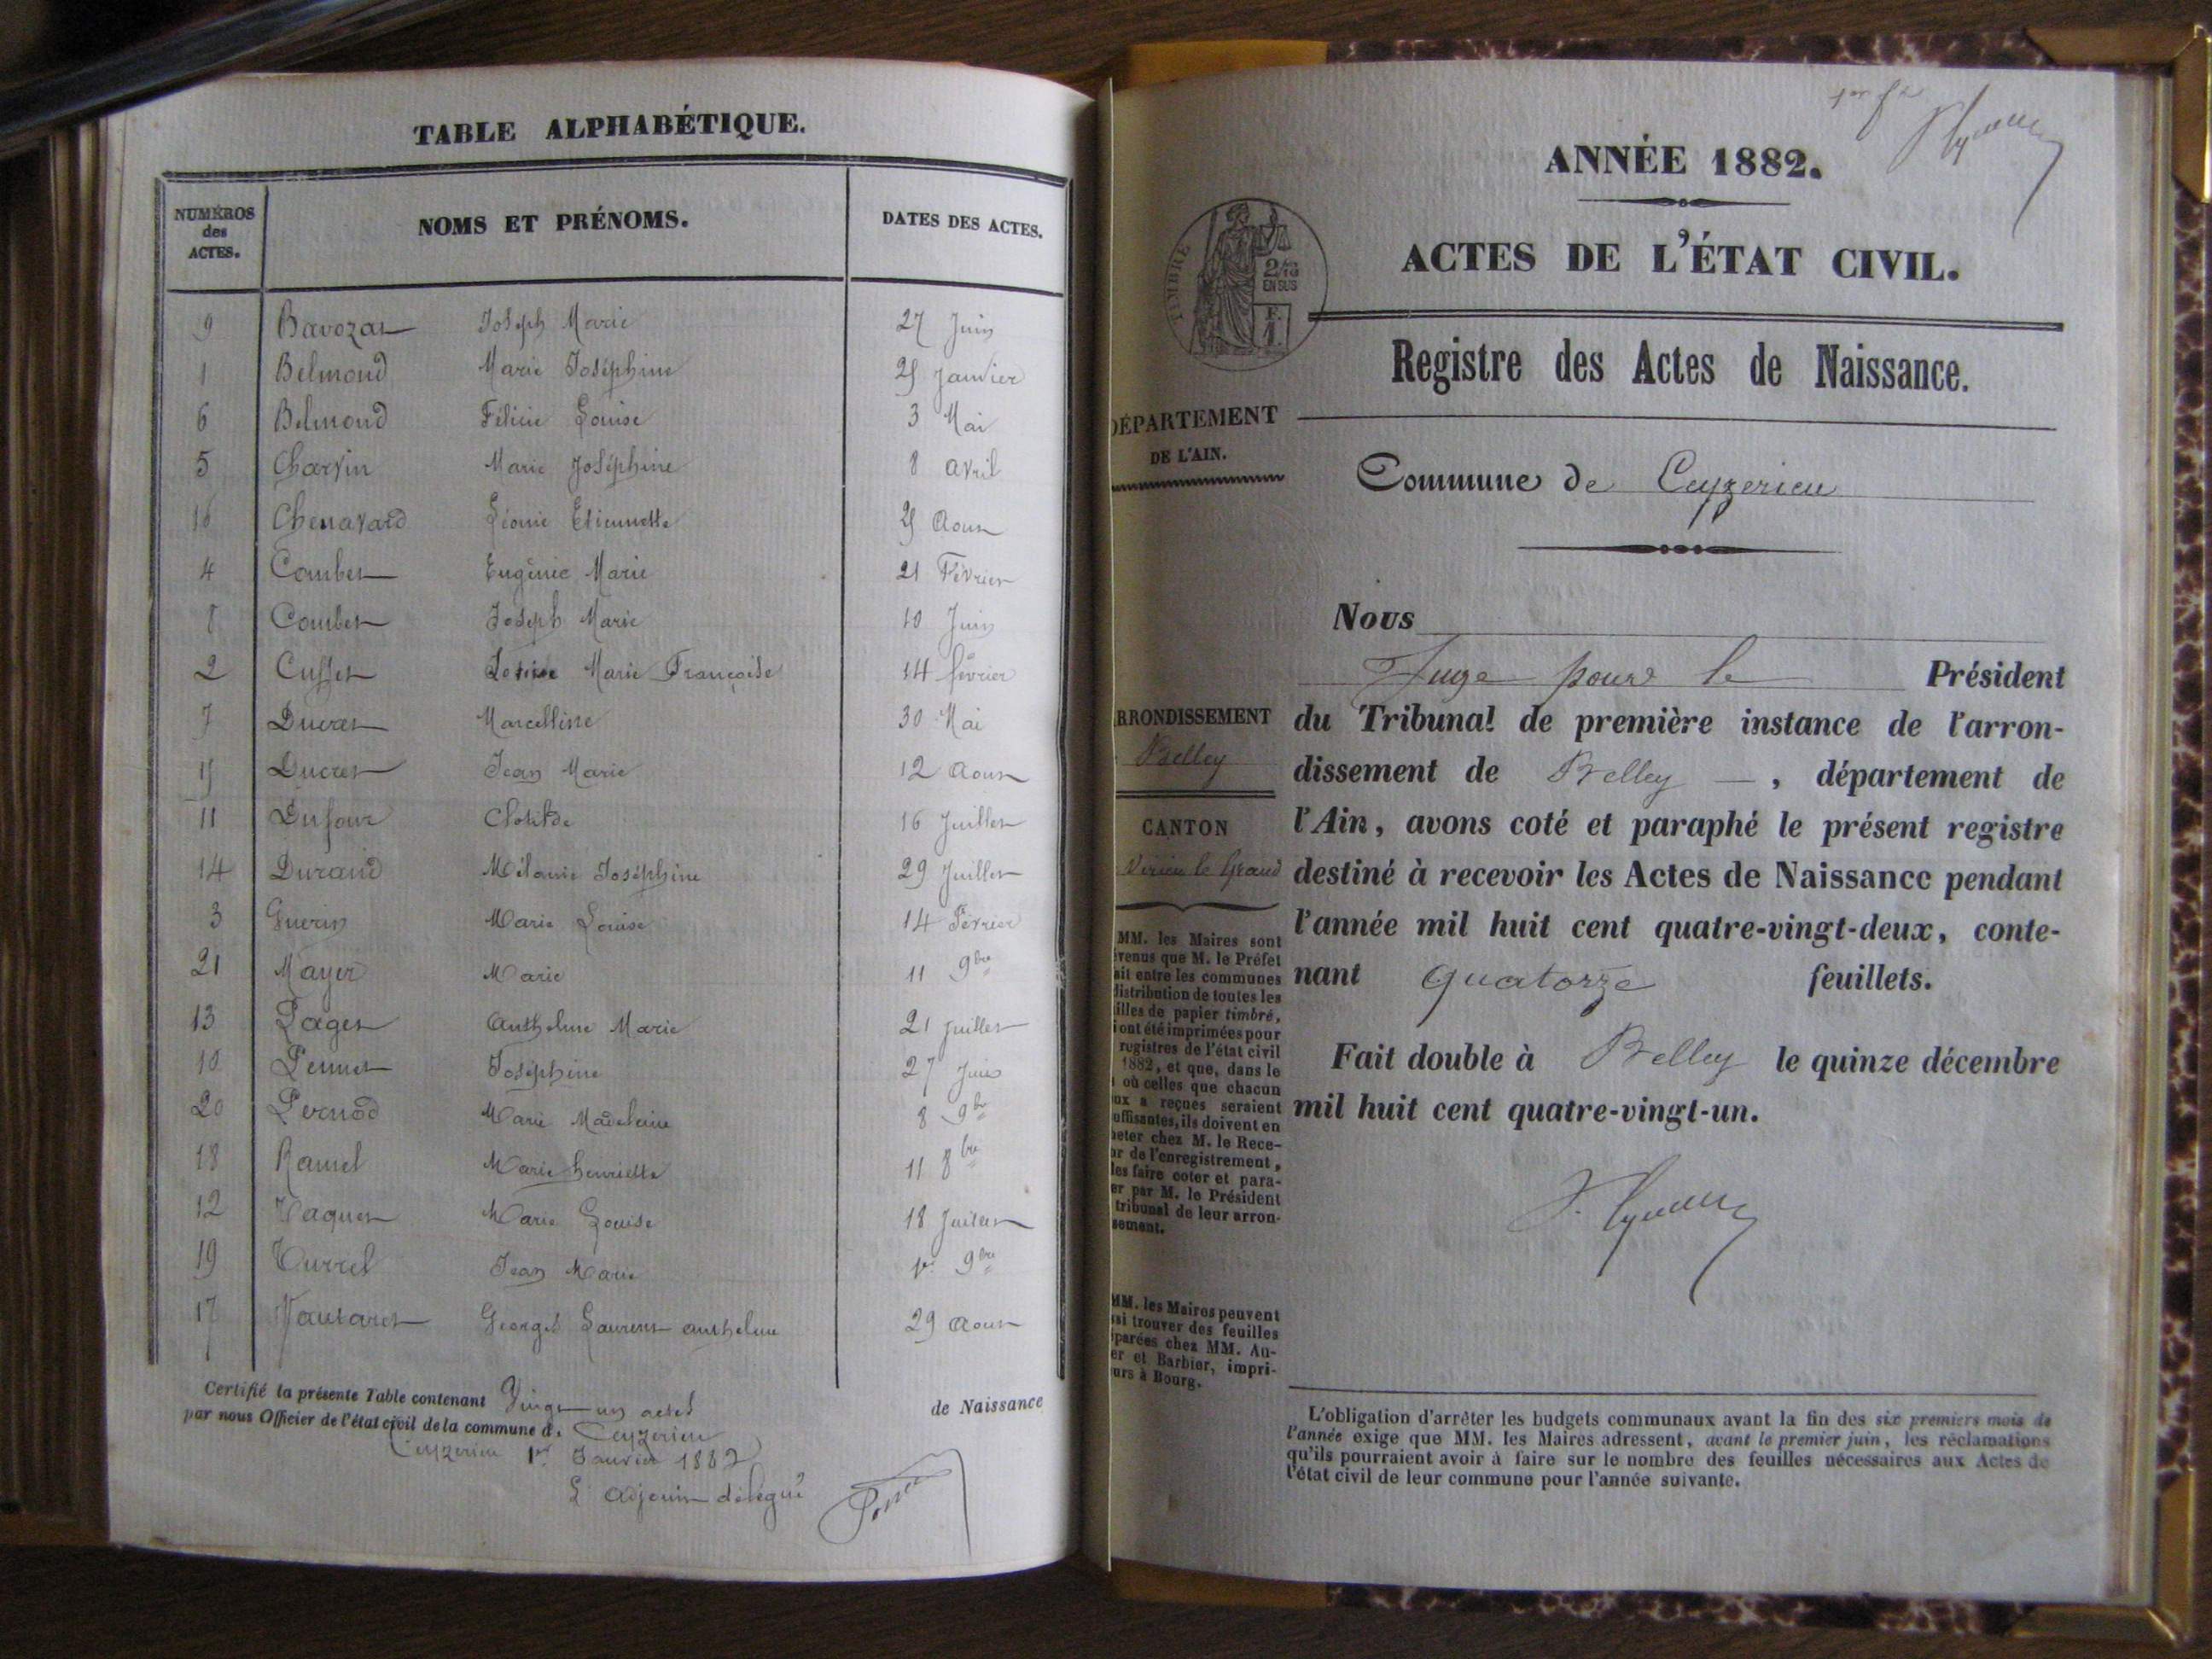 TABLE ALPHABÉTIQUE.
NUMÉROS des ACTES.
NOMS ET PRÉNOMS.
DATES DES ACTES.
9 Bavozat Joseph Marie 27 Juin
1 Belmond Marie Joséphine 25 Janvier
6 Belmond Félicie Louise 3 Mai
5 Charvin Marie Joséphine 8 avril
16 Chenavard Léonie Etiennette 25 Aout
4 Combet Eugénie Marie 21 Février
8 Combet Joseph Marie 10 Juin
2 Cusset Marie Françoise 14 février
7 Ducret Marcelline 30 Mai
15 Ducret Jean Marie 12 Aout
11 Dufour Clotilde 16 Juillet
14 Durand Mélanie Joséphine 29 Juillet
3 Guerin Marie Louise 14 Février
21 Mayer Marie 11 9bre
13 Paget Anthelme Marie 21 juillet
10 Pernet Joséphine 27 Juin
20 Pernod Marie Madeleine 8 9bre
18 Ramel Marie henriette 11 8bre
12 Taquet Marie Louise 18 Juillet
19 Turrel Jean Marie 1er 9bre
17 Vautaret Georges Laurent anthelme 29 Aout
Certifié la présente Table contenant Vingt un actes de Naissance
par nous Officier de l'état civil de la commune de Ceyzerieu
Ceyzerieu 1er Janvier 1882
L'adjoint délégué
ANNÉE 1882.
ACTES DE L'ÉTAT CIVIL.
TIMBRE
2/10 EN SUS
F. 1
Registre des Actes de Naissance.
DÉPARTEMENT
DE L'AIN.
Commune de Ceyzerieu
Nous
Juge pour le Président
ARRONDISSEMENT
Belley
CANTON
Virieu le Grand
du Tribunal de première instance de l'arron-
dissement de Belley —, département de
l'Ain, avons coté et paraphé le présent registre
destiné à recevoir les Actes de Naissance pendant
l'année mil huit cent quatre-vingt-deux, conte-
nant quatorze feuillets.
Fait double à Belley le quinze décembre
mil huit cent quatre-vingt-un.
MM. les Maires sont
venus que M. le Préfet
ait entre les communes
distribution de toutes les
illes de papier timbré,
i ont été imprimées pour
registres de l'état civil
1882, et que, dans le
où celles que chacun
ux a reçues seraient
uffisantes, ils doivent en
heter chez M. le Rece-
ur de l'enregistrement,
les faire coter et para-
er par M. le Président
tribunal de leur arron-
sement.
MM. les Maires peuvent
si trouver des feuilles
parées chez MM. Au-
er et Barbier, impri-
urs à Bourg.
L'obligation d'arrêter les budgets communaux avant la fin des six premiers mois de
l'année exige que MM. les Maires adressent, avant le premier juin, les réclamations
qu'ils pourraient avoir à faire sur le nombre des feuilles nécessaires aux Actes de
l'état civil de leur commune pour l'année suivante.